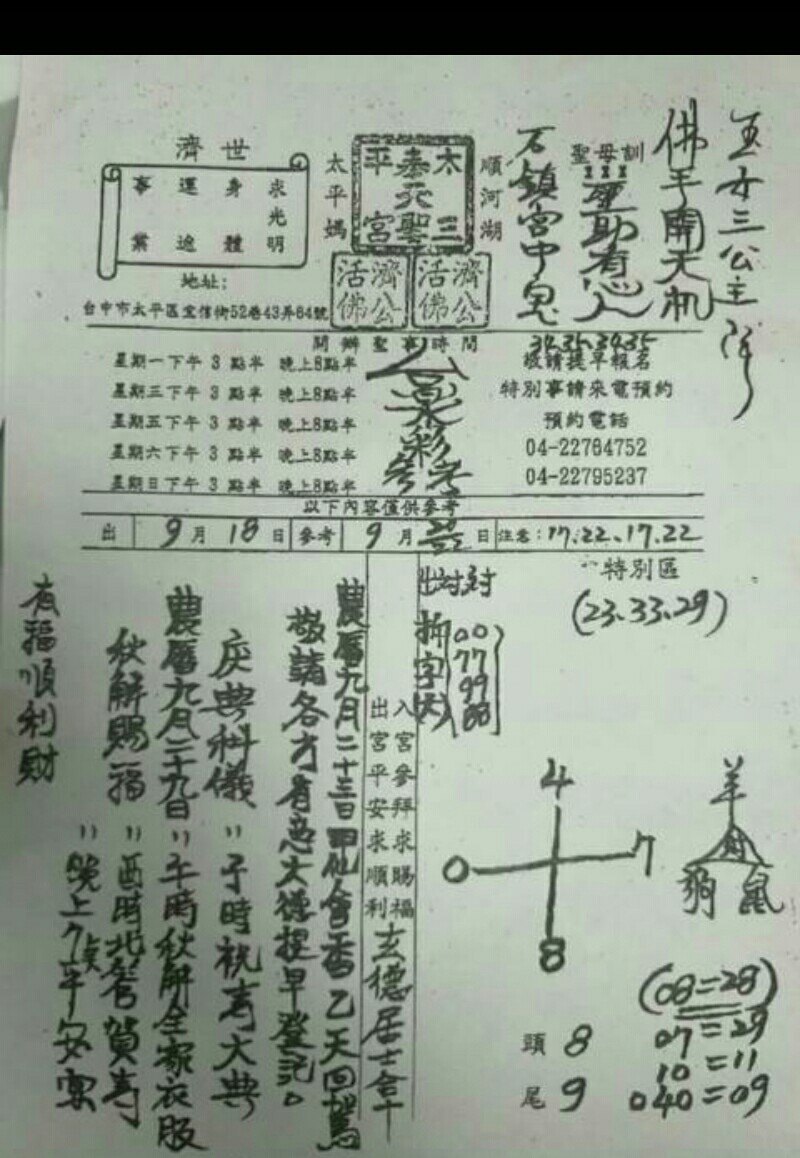 玉女三公主降
佛手開天机
聖母訓
聖助有心人
石鎮宮中鬼
順河湖
太平媽
太三
奉元聖
平宮
濟公活佛
濟公活佛
濟世
求光明
身體
運途
事業
地址:
台中市太平區宜信街52巷43弄64號
開辦聖事時間
34.35.34.35
星期一下午 3 點半 晚上8點半
敬請提早報名
星期三下午 3 點半 晚上8點半
特別事請來電預約
星期五下午 3 點半 晚上8點半
預約電話
星期六下午 3 點半 晚上8點半
04-22764752
星期日下午 3 點半 晚上8點半
04-22795237
六合彩
參考
以下內容僅供參考
出 9月 18日 參考 9月 20 22 日 注意:17.22.17.22
特別區
(23.33.29)
00
77
99
88
入宮參拜求賜福
出宮平安求順利
玄德居士合十
農曆九月二十三日
敬請各方有志大德提早登記。
慶典科儀 " 子時祝壽大典
農曆九月二十九日 " 午時秋解全家衣服
秋解賜福 " 酉時
賀壽
" 晚上
平安宴
有福順利財
4
0 7
8
羊
狗 鼠
頭 8
尾 9
(08=28)
07=29
10=11
040=09